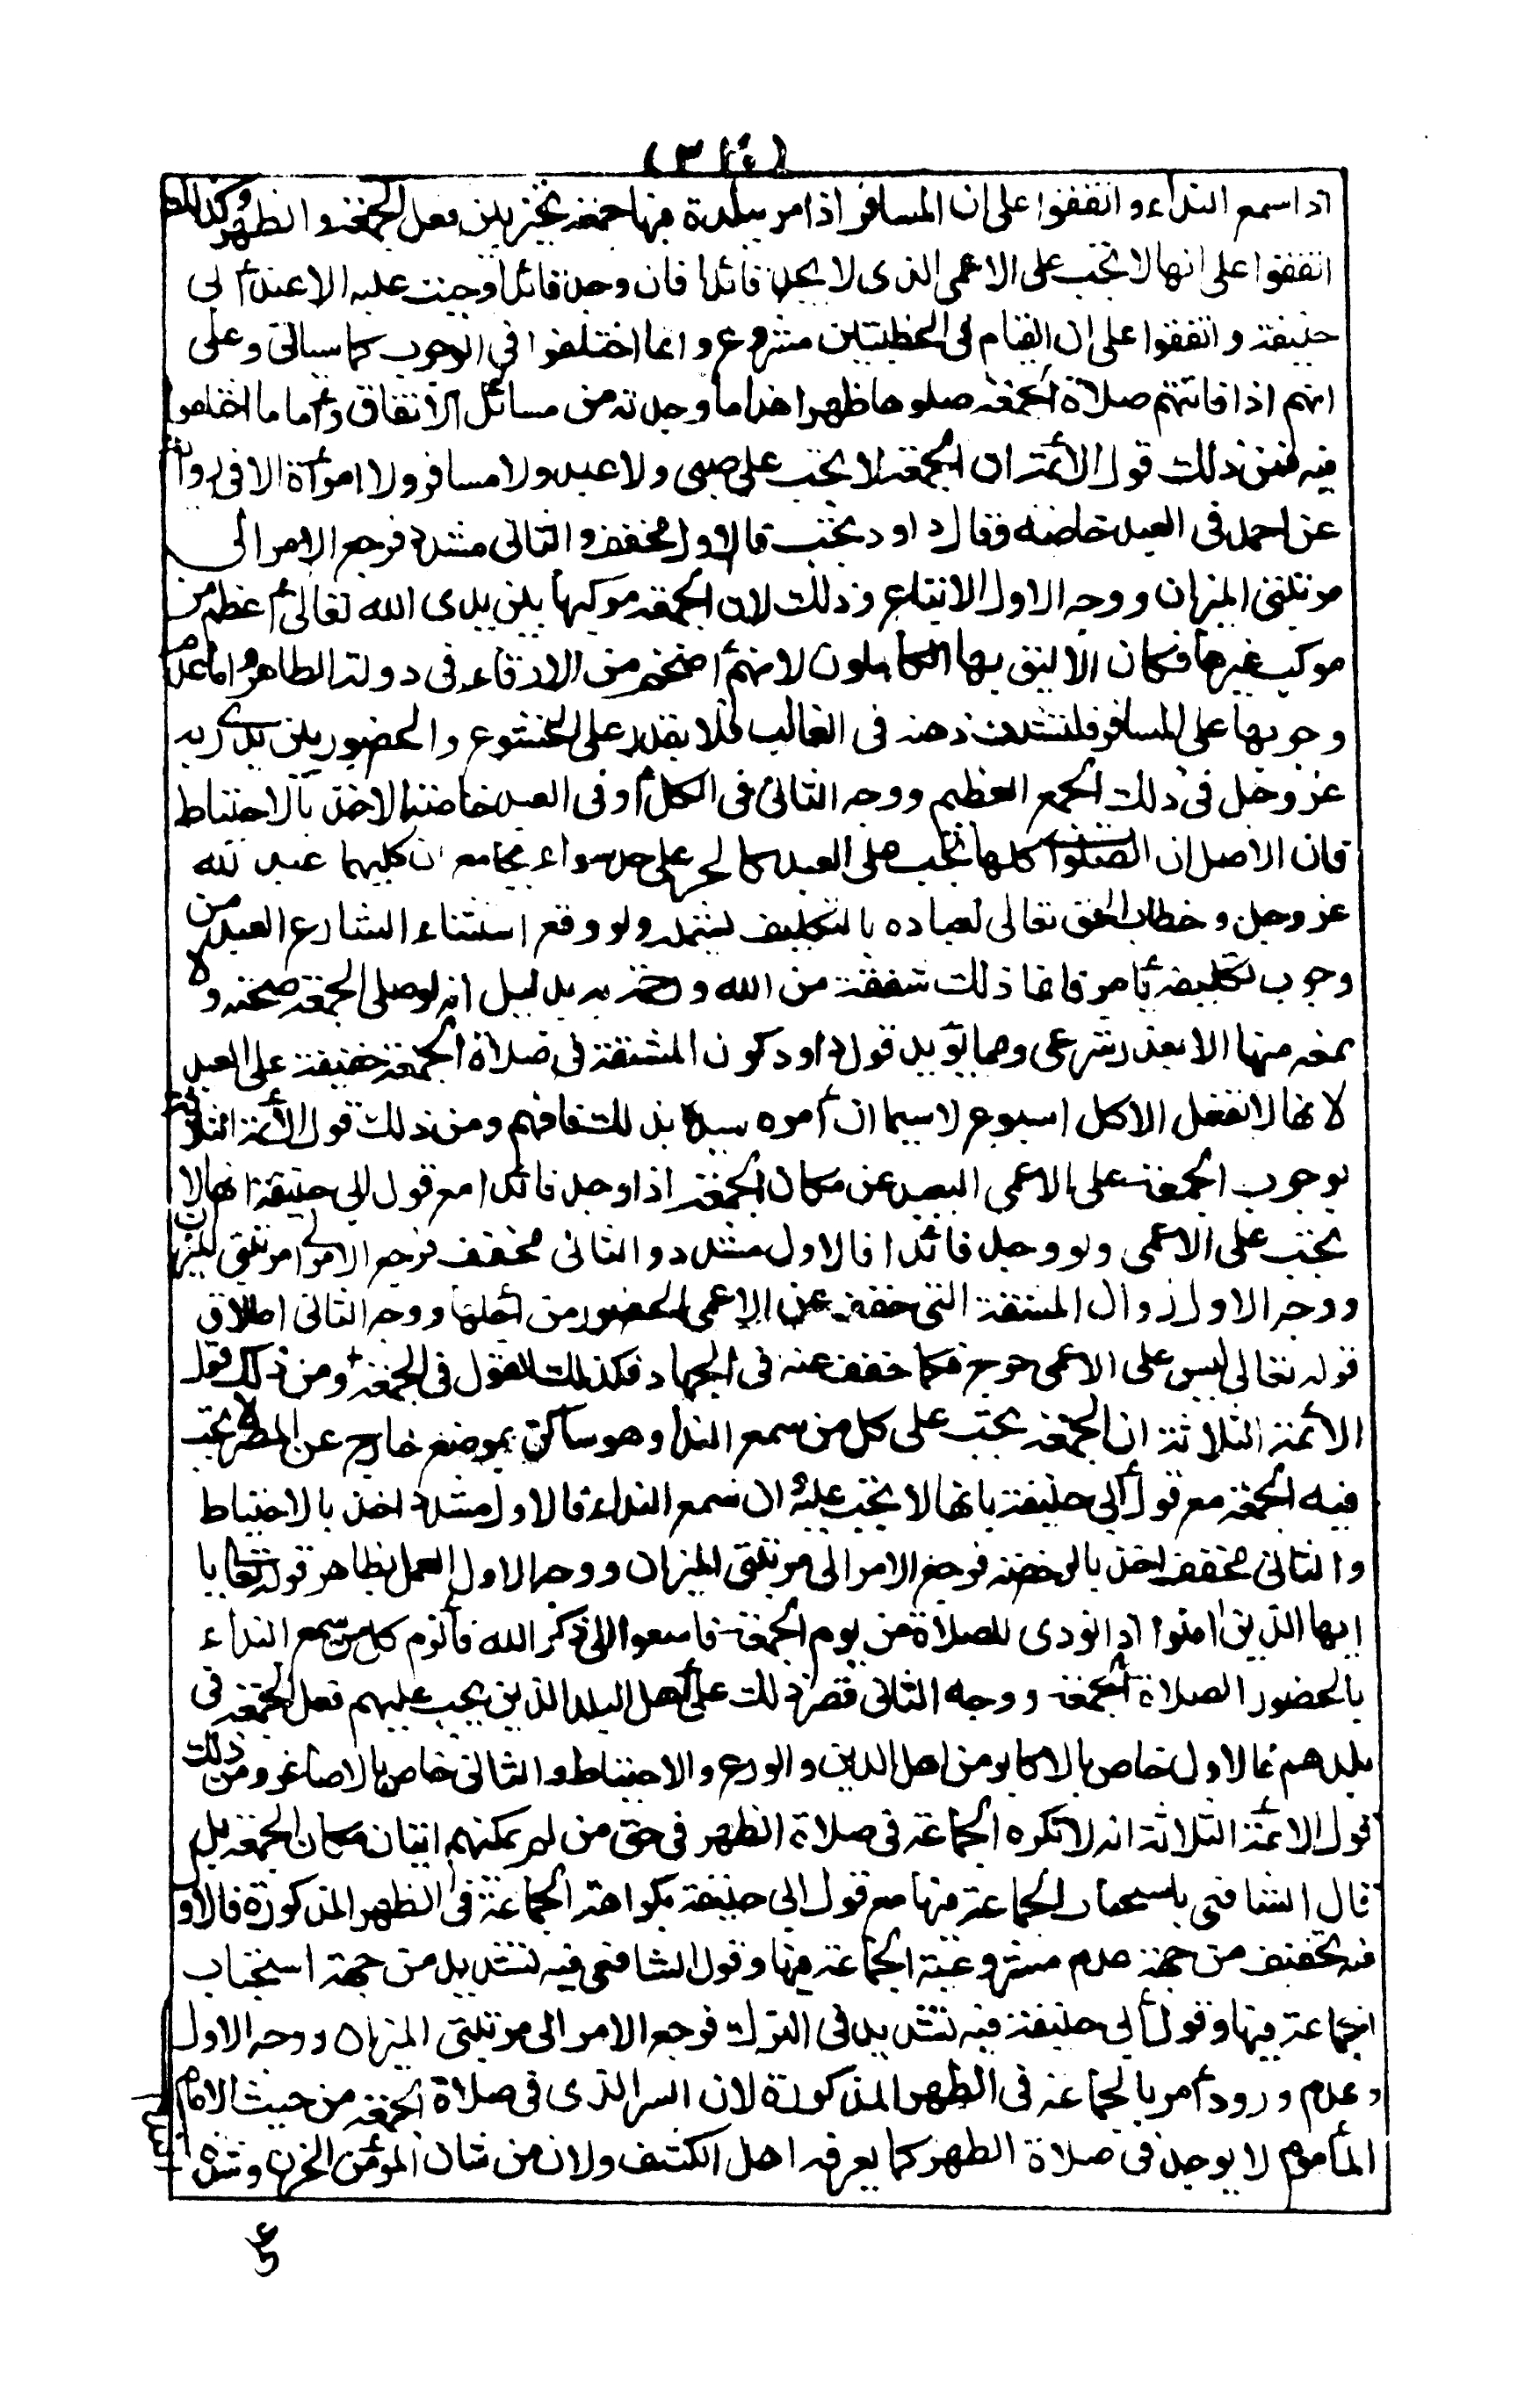 (٣١٤)
اذا سمع النداء واتفقوا على ان المسافر اذا مر ببلدة فيها جمعة يخير بين فعل الجمعة والظهر وكذلك
اتفقوا على انها لا تجب على الاعمى الذى لا يجد قائدا فان وجد قائدا وجبت عليه الا عند أبى
حنيفة واتفقوا على ان القيام فى الخطبتين مشروع وانما اختلفوا في الوجوب كما سيأتى وعلى
انهم اذا فاتتهم صلاة الجمعة صلوها ظهرا هذا ما وجدته من مسائل الاتفاق وأما ما اختلفوا
فيه فمن ذلك قول الأئمة ان الجمعة لا تجب على صبى ولا عبد ولا مسافر ولا امرأة الا فى رواية
عن احمد فى العبد خاصة وقال داود تجب فالاول مخفف والثانى مشدد فرجع الامر الى
مرتبتى الميزان ووجه الاول الاتباع وذلك لان الجمعة موكبها بين يدى الله تعالى أعظم من
موكب غيرها فكان الاليق بها الكاملون لانهم أضخم من الارقاء فى دولة الظاهر وأما عدم
وجوبها على المسافر فلتشتت ذهنه فى الغالب فلا يقدر على الخشوع والحضور بين يدى ربه
عز وجل فى ذلك الجمع العظيم ووجه الثانى فى الكل أو فى العبد خاصة الاخذ بالاحتياط
فان الاصل ان الصلوات كلها تجب على العبد كالحر على حد سواء بجامع ان كليهما عبد لله
عز وجل وخطاب الحق تعالى لعباده بالتكليف يشمله ولو وقع استثناء الشارع العبد من
وجوب تكليفه بأمر فانما ذلك شفقة من الله ورحمة به بدليل انه لو صلى الجمعة صحت ولا
يمنعه منها الا بعذر شرعى ومما يؤيد قول داود كون المشقة فى صلاة الجمعة خفيفة على العبد
لانها لا تفعل الا كل اسبوع لا سيما ان أمره سيده بذلك فافهم ومن ذلك قول الأئمة الثلاثة
بوجوب الجمعة على الاعمى البعيد عن مكان الجمعة اذا وجد قائدا مع قول ابى حنيفة انها لا
تجب على الاعمى ولو وجد قائدا فالاول مشدد والثانى مخفف فرجع الامر الى مرتبتى الميزان
ووجه الاول زوال المشقة التى خفف عن الاعمى الحضور من أجلها ووجه الثانى اطلاق
قوله تعالى ليس على الاعمى حرج فكما خفف عنه فى الجهاد فكذلك القول فى الجمعة ومن ذلك قول
الأئمة الثلاثة ان الجمعة تجب على كل من سمع النداء وهو ساكن بموضع خارج عن المصر لا تجب
فيه الجمعة مع قول أبى حنيفة بانها لا تجب عليه ان سمع النداء فالاول مشدد اخذ بالاحتياط
والثانى مخفف اخذ بالرخصة فرجع الامر الى مرتبتى الميزان ووجه الاول العمل بظاهر قوله تعالى يا
ايها الذين امنوا اذا نودى للصلاة من يوم الجمعة فاسعوا الى ذكر الله فألزم كل من سمع النداء
بالحضور الصلاة الجمعة ووجه الثانى قصر ذلك على أهل البلد الذين يجب عليهم فعل الجمعة فى
بلدهم فالاول خاص بالاكابر من اهل الدين والورع والاحتياط والثانى خاص بالاصاغر ومن ذلك
قول الائمة الثلاثة انه لا تكره الجماعة فى صلاة الظهر فى حق من لم يمكنهم اتيان مكان الجمعة بل
قال الشافعى باستحباب الجماعة فيها مع قول ابى حنيفة بكراهة الجماعة فى الظهر المذكورة فالاول
فيه تخفيف من جهة عدم مشروعية الجماعة فيها وقول الشافعى فيه تشديد من جهة استحباب
الجماعة فيها وقول أبى حنيفة فيه تشديد فى الترك فرجع الامر الى مرتبتى الميزان ووجه الاول
وعدم ورود أمر بالجماعة فى الظهر المذكورة لان السر الذى فى صلاة الجمعة من حيث الامام
المأموم لا يوجد فى صلاة الظهر كما يعرفه اهل الكشف ولان من شان المؤمن الحزن وشدة